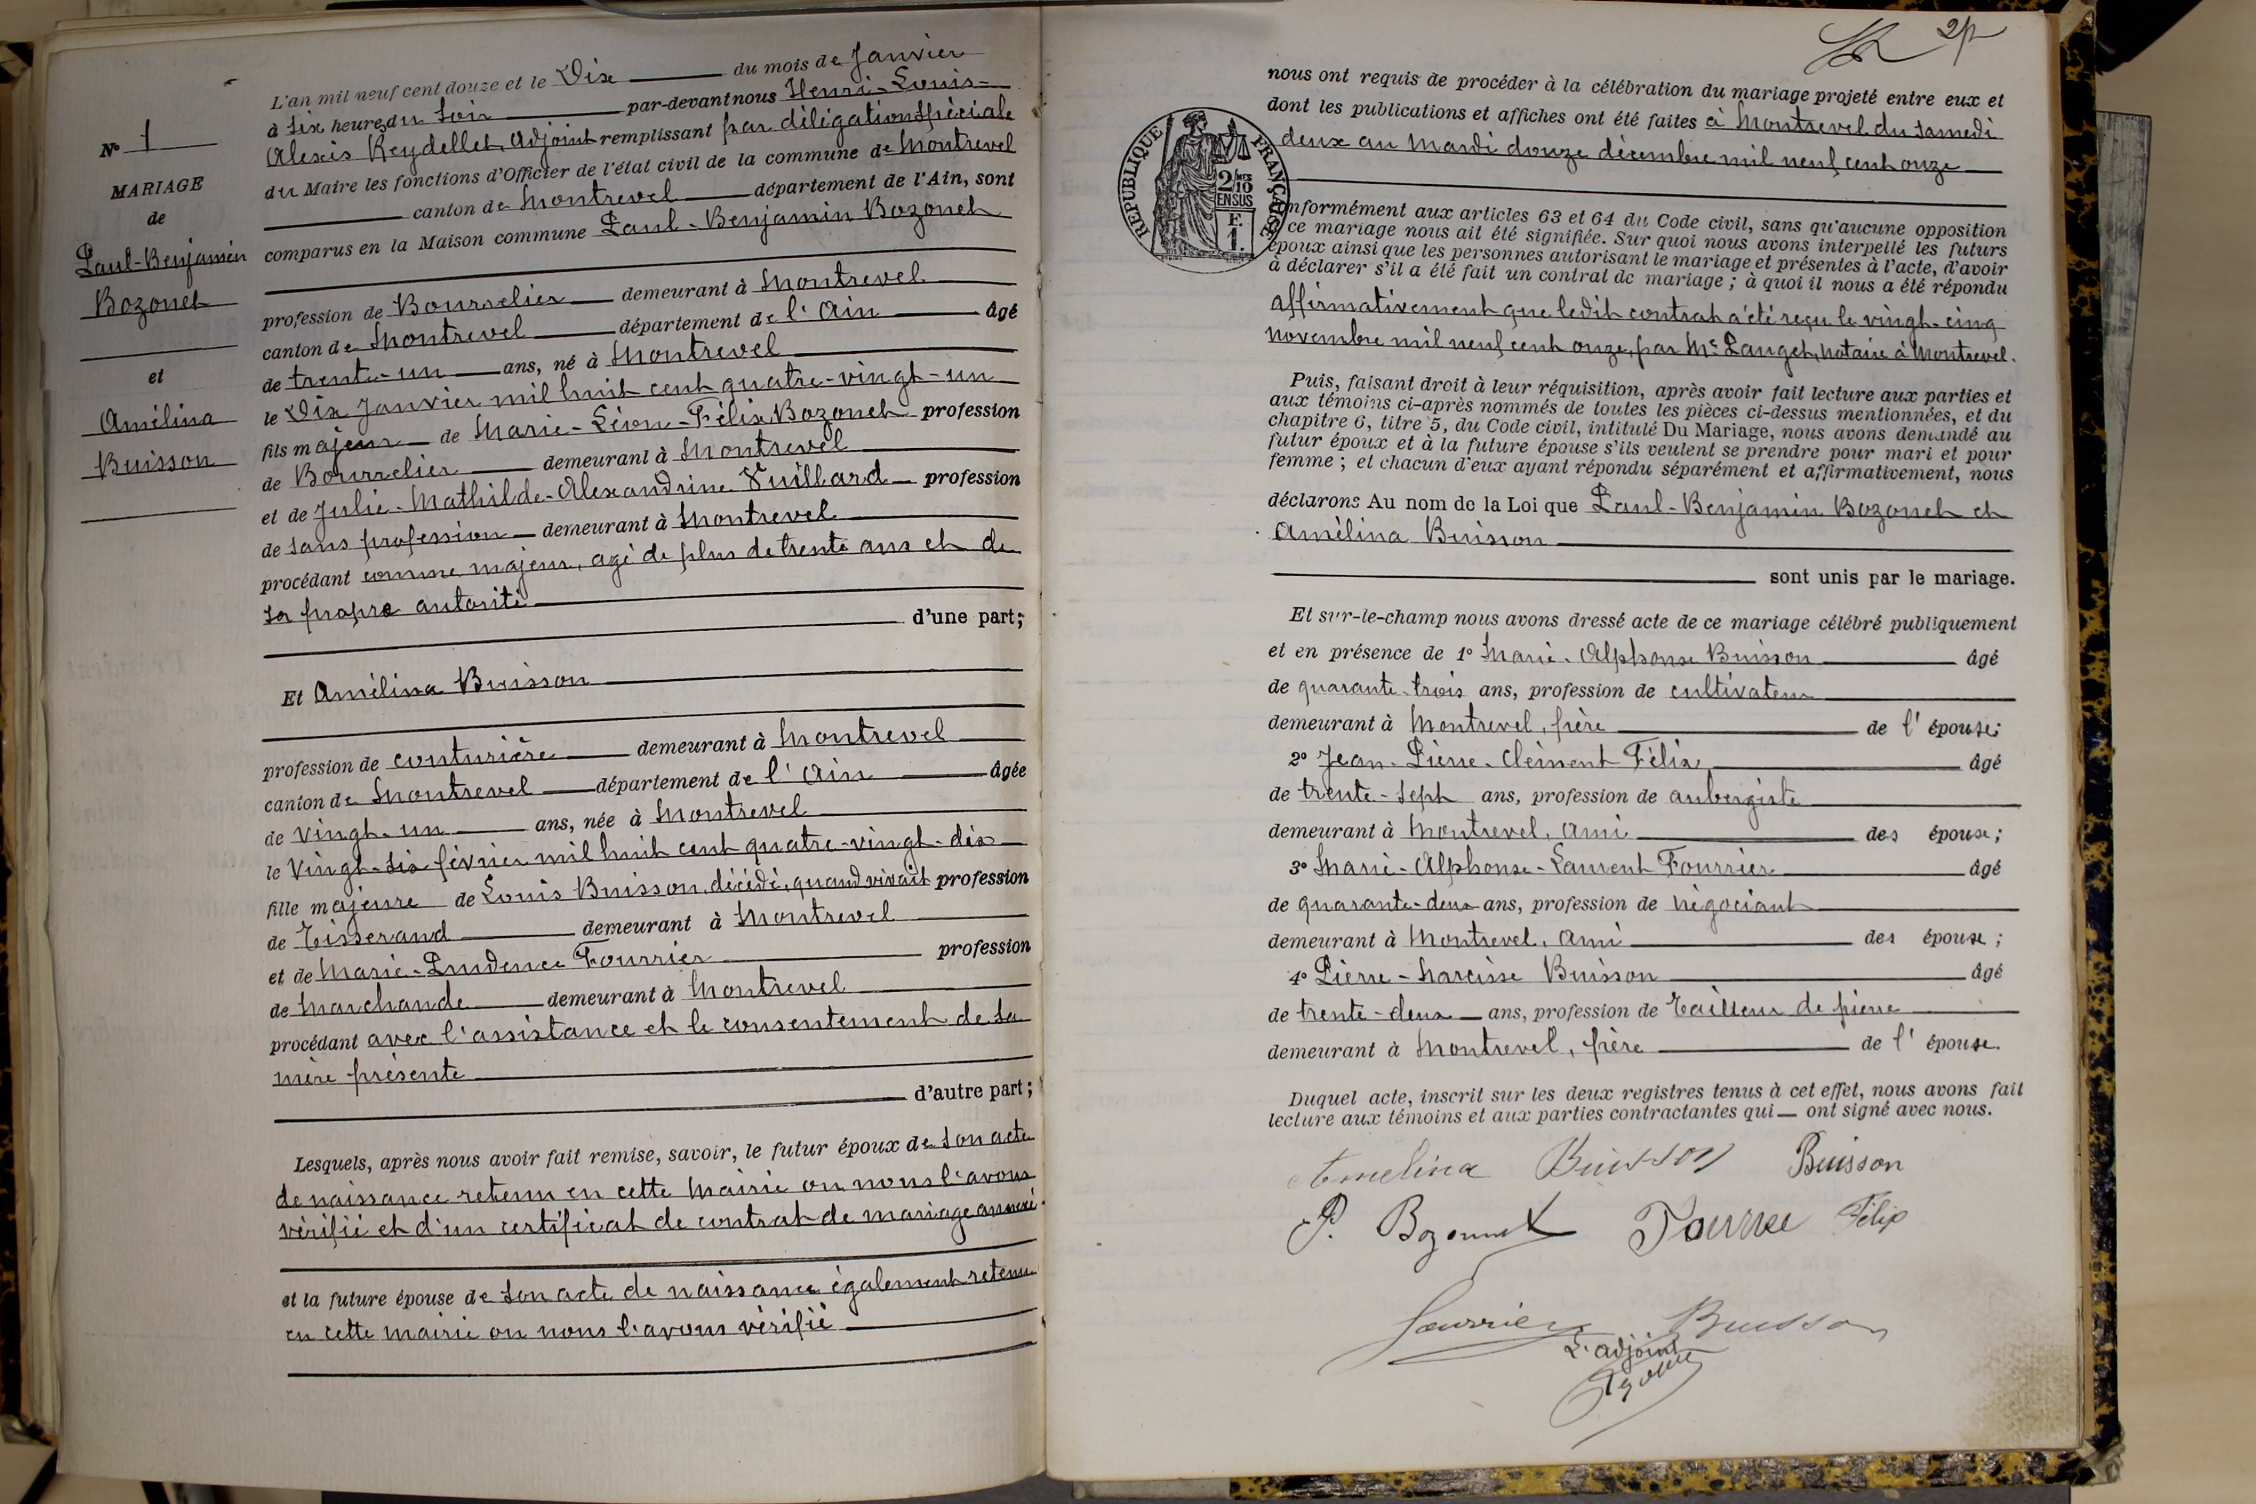 N° 1
MARIAGE
de
Paul-Benjamin
Bozonet
et
Amélina
Buisson
L'an mil neuf cent douze et le Dix du mois de Janvier
à six heures du soir par-devant nous Henri-Louis-
Alexis Reydellet, Adjoint remplissant par délégation spéciale
du Maire les fonctions d'Officier de l'état civil de la commune de Montrevel
canton de Montrevel département de l'Ain, sont
comparus en la Maison commune Paul-Benjamin Bozonet
profession de Bourrelier demeurant à Montrevel
canton de Montrevel département de l'Ain âgé
de trente-un ans, né à Montrevel
le Dix Janvier mil huit cent quatre-vingt-un
fils majeur de Marie-Léon-Félix Bozonet profession
de Bourrelier demeurant à Montrevel
et de Julie-Mathilde-Alexandrine Vuillard profession
de sans profession demeurant à Montrevel
procédant comme majeur, agé de plus de trente ans et de
sa propre autorité
d'une part;
Et Amélina Buisson
profession de couturière demeurant à Montrevel
canton de Montrevel département de l'Ain âgée
de vingt-un ans, née à Montrevel
le Vingt-six février mil huit cent quatre-vingt-dix
fille majeure de Louis Buisson, décédé, quand vivait profession
de Tisserand demeurant à Montrevel
et de Marie-Prudence Fourrier profession
de Marchande demeurant à Montrevel
procédant avec l'assistance et le consentement de sa
mère présente
d'autre part;
Lesquels, après nous avoir fait remise, savoir, le futur époux de son acte
de naissance retenu en cette Mairie ou nous l'avons
vérifié et d'un certificat de contrat de mariage annexé.
et la future épouse de son acte de naissance également retenu
en cette mairie ou nous l'avons vérifié
nous ont requis de procéder à la célébration du mariage projeté entre eux et
dont les publications et affiches ont été faites à Montrevel du samedi
deux au mardi douze décembre mil neuf cent onze
REPUBLIQUE FRANÇAISE
2/10
MES
EN SUS
F.
1.
conformément aux articles 63 et 64 du Code civil, sans qu'aucune opposition
ce mariage nous ait été signifiée. Sur quoi nous avons interpellé les futurs
époux ainsi que les personnes autorisant le mariage et présentes à l'acte, d'avoir
à déclarer s'il a été fait un contrat de mariage ; à quoi il nous a été répondu
affirmativement que ledit contrat a été reçu le vingt-cinq
novembre mil neuf cent onze, par Me Lauget, notaire à Montrevel.
Puis, faisant droit à leur réquisition, après avoir fait lecture aux parties et
aux témoins ci-après nommés de toutes les pièces ci-dessus mentionnées, et du
chapitre 6, titre 5, du Code civil, intitulé Du Mariage, nous avons demandé au
futur époux et à la future épouse s'ils veulent se prendre pour mari et pour
femme ; et chacun d'eux ayant répondu séparément et affirmativement, nous
déclarons Au nom de la Loi que Paul-Benjamin Bozonet et
Amélina Buisson
sont unis par le mariage.
Et sur-le-champ nous avons dressé acte de ce mariage célébré publiquement
et en présence de 1° Marie-Alphonse Buisson âgé
de quarante-trois ans, profession de cultivateur
demeurant à Montrevel, frère de l'épouse;
2° Jean-Pierre-Clément Félix âgé
de trente-sept ans, profession de aubergiste
demeurant à Montrevel, ami des épouse;
3° Marie-Alphonse-Laurent Fourrier âgé
de quarante-deux ans, profession de négociant
demeurant à Montrevel, ami des épouse ;
4° Pierre-Narcisse Buisson âgé
de trente-deux ans, profession de Tailleur de pierre
demeurant à Montrevel, frère de l'épouse.
Duquel acte, inscrit sur les deux registres tenus à cet effet, nous avons fait
lecture aux témoins et aux parties contractantes qui ont signé avec nous.
Amelina Buisson Buisson
P. Bozonnet Félix
Fourrier Buisson
L'adjoint